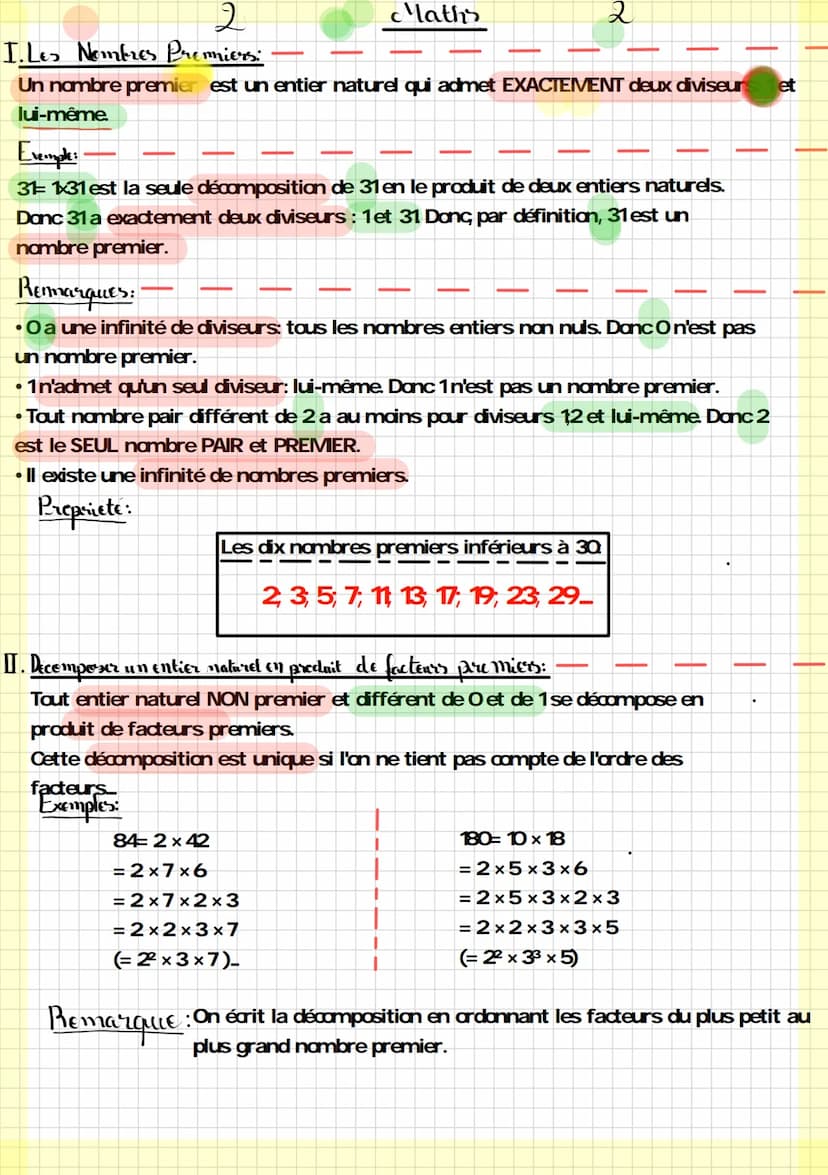 2 Maths 2
I. Les Nombres Premiers:
Un nombre premier est un entier naturel qui admet EXACTEMENT deux diviseurs 1 et
lui-même.
Exemple:
31= 1×31 est la seule décomposition de 31 en le produit de deux entiers naturels.
Donc 31 a exactement deux diviseurs : 1 et 31 Donc, par définition, 31 est un
nombre premier.
Remarques:
• 0 a une infinité de diviseurs: tous les nombres entiers non nuls. Donc 0 n'est pas
un nombre premier.
• 1 n'admet qu'un seul diviseur: lui-même. Donc 1 n'est pas un nombre premier.
• Tout nombre pair différent de 2 a au moins pour diviseurs 1,2 et lui-même. Donc 2
est le SEUL nombre PAIR et PREMIER.
• Il existe une infinité de nombres premiers.
Propriete:
Les dix nombres premiers inférieurs à 30:
2; 3; 5; 7; 11; 13; 17; 19; 23; 29...
II. Decomposer un entier naturel en produit de facteurs premiers:
Tout entier naturel NON premier et différent de 0 et de 1 se décompose en
produit de facteurs premiers.
Cette décomposition est unique si l'on ne tient pas compte de l'ordre des
facteurs...
Exemples:
84= 2 × 42
= 2 × 7 × 6
= 2 × 7 × 2 × 3
= 2 × 2 × 3 × 7
(= 2² × 3 × 7)...
180= 10 × 18
= 2 × 5 × 3 × 6
= 2 × 5 × 3 × 2 × 3
= 2 × 2 × 3 × 3 × 5
(= 2² × 3³ × 5)
Remarque: On écrit la décomposition en ordonnant les facteurs du plus petit au
plus grand nombre premier.